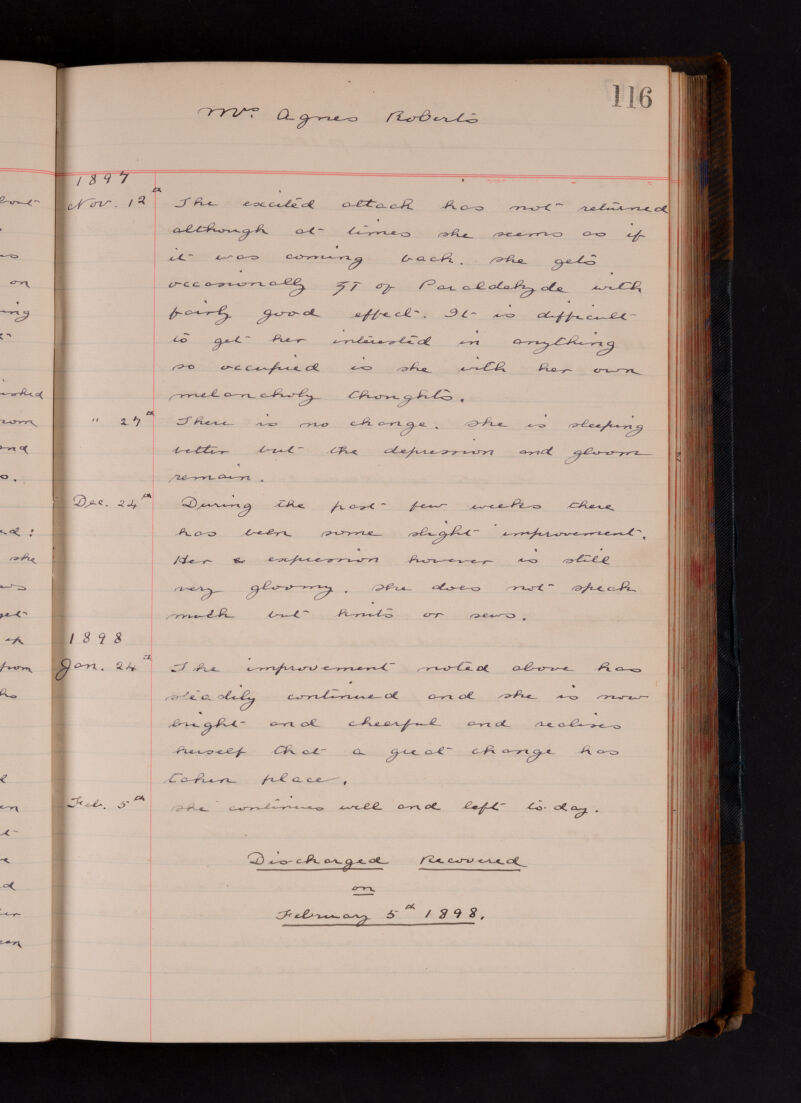 116
Mrs. Agnes Roberts
1897
Nov. 12th The excited attack has not returned
although at times she seems as if
it was coming back. She gets
occasionally ʒT of Paraldehyde with
fairly good effect. It is difficult
to get her interested in anything
so occupied is she with her own
melancholy thoughts.
" 27th There is no change. She is sleeping
better but the depression and gloom
remain.
Dec. 24th During the past few weeks there
has been some slight improvement.
Her expression however is still
very gloomy. She does not speak
much but knits or sews.
1898
Jan. 24th The improvement noted above has
steadily continued and she is now
bright and cheerful and realises
herself that a great change has
taken place.
Feb. 5th She continues well and left to-day.
Discharged Recovered
on
February 5th 1898.